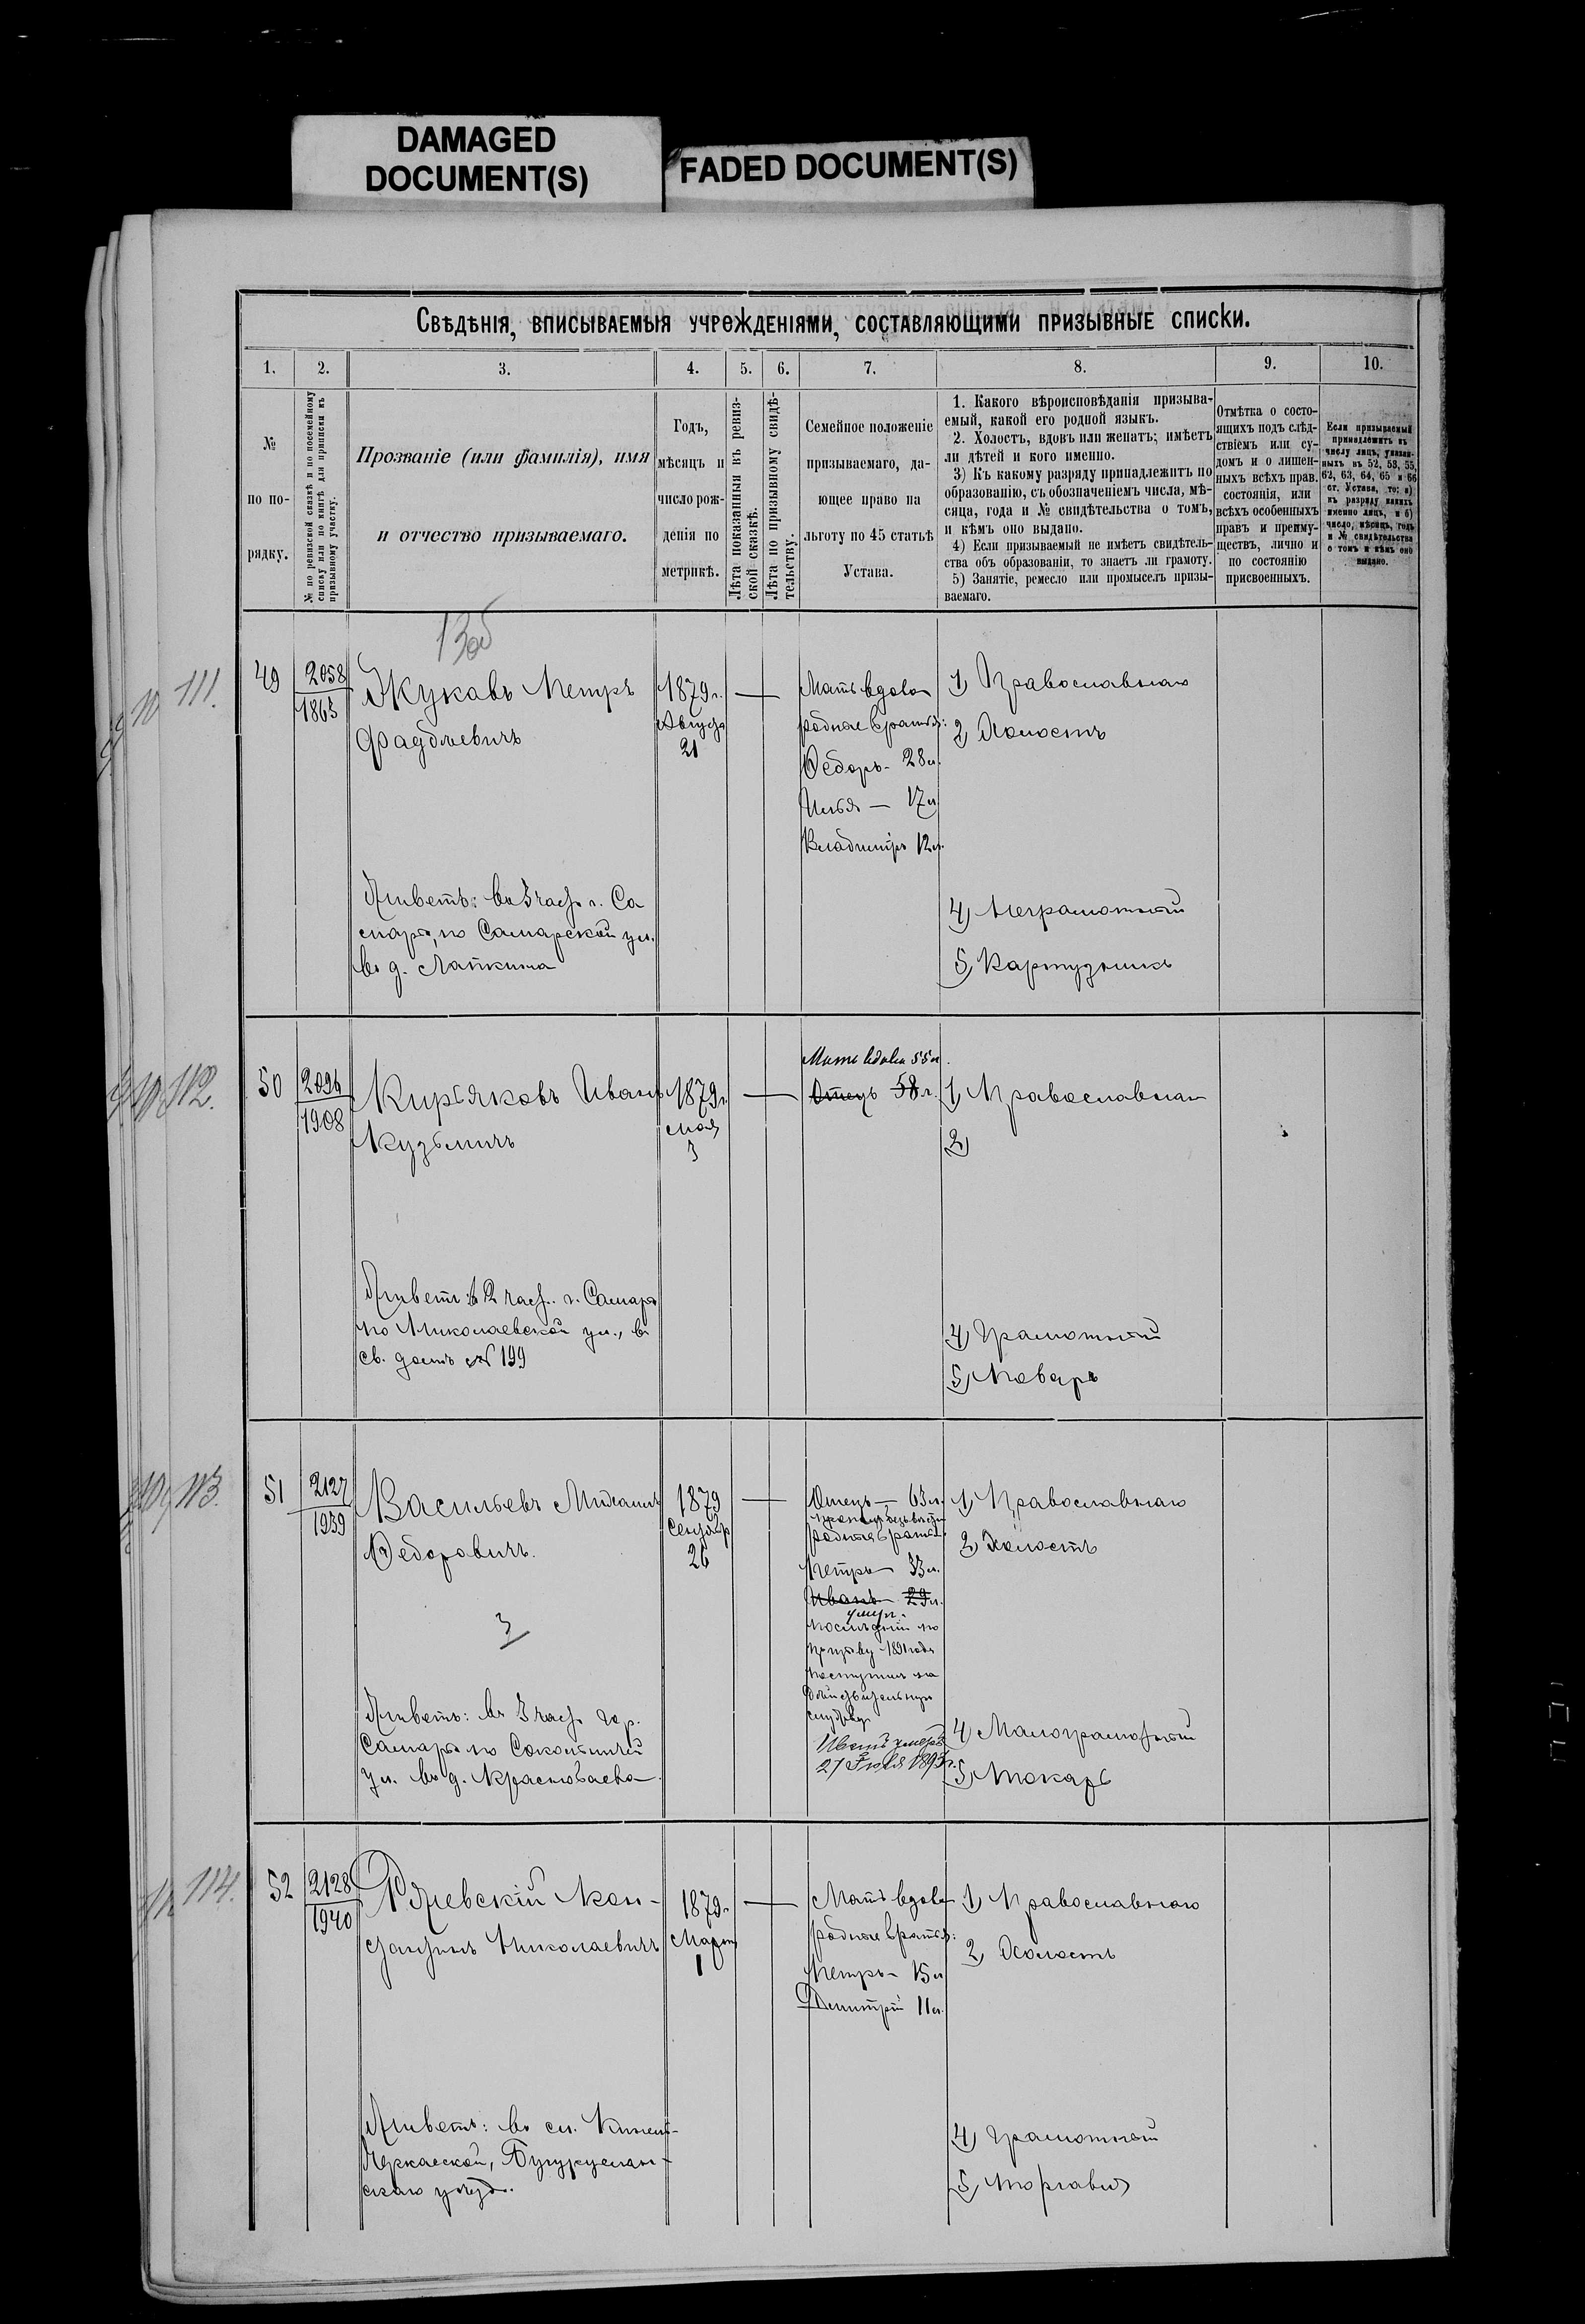 DAMAGED
DOCUMENT(S)
FADED DOCUMENT(S)
Свѣдѣнія, вписываемыя учрежденіями, составляющими призывные списки.
1. 2. 3. 4. 5. 6. 7. 8. 9. 10.
№
по по-
рядку.
№ по ревизской сказкѣ и по посемейному
списку или по книгѣ для приписки къ
призывному участку.
Прозваніе (или фамилія), имя
и отчество призываемаго.
Годъ,
мѣсяцъ и
число рож-
денія по
метрикѣ.
Лѣта показанныя въ ревиз-
ской сказкѣ.
Лѣта по призывному свидѣ-
тельству.
Семейное положеніе
призываемаго, да-
ющее право на
льготу по 45 статьѣ
Устава.
1. Какого вѣроисповѣданія призыва-
емый, какой его родной языкъ.
2. Холостъ, вдовъ или женатъ; имѣетъ
ли дѣтей и кого именно.
3) Къ какому разряду принадлежитъ по
образованію, съ обозначеніемъ числа, мѣ-
сяца, года и № свидѣтельства о томъ,
и кѣмъ оно выдано.
4) Если призываемый не имѣетъ свидѣтель-
ства объ образованіи, то знаетъ ли грамоту.
5) Занятіе, ремесло или промыселъ призы-
ваемаго.
Отмѣтка о состо-
ящихъ подъ слѣд-
ствіемъ или су-
домъ и о лишен-
ныхъ всѣхъ правъ
состоянія, или
всѣхъ особенныхъ
правъ и преиму-
ществъ, лично и
по состоянію
присвоенныхъ.
Если призываемый
принадлежитъ къ
числу лицъ, указан-
ныхъ въ 52, 53, 55,
62, 63, 64, 65 и 66
ст. Устава, то: а)
къ разряду какихъ
именно лицъ, и б)
число, мѣсяцъ, годъ
и № свидѣтельства
о томъ и кѣмъ оно
выдано.
111.
49
2058
1863
Жуковъ Петръ
Фадѣевичъ
1879 г.
Августа
21
Мать вдова
родные братья:
Федоръ - 28 л.
Илья — 17 л.
Владиміръ 12 л.
1) Православнаго
2) Холостъ
Живетъ: въ 3 част. г. Са
марѣ, по Самарской ул.
въ д. Лапкина
4) Неграмотный
5) Картузникъ
112.
50
2094
1908
Кирьяковъ Иванъ
Кузьмичъ
1879 г.
Мая
3
Мать вдова 55 л.
Отецъ 58 л.
1) Православная
2)
Живетъ: въ 2 част. г. Самарѣ
по Николаевской ул., въ
св. домѣ № 199
4) Грамотный
5) Поваръ
113.
51
2127
1939
Васильевъ Михаилъ
Федоровичъ.
1879
Сентябр
26
Отецъ — 63 л.
родные братья:
Петръ — 33 л.
Иванъ — 29 л.
умеръ.
послѣдній по
призыву 1891 года
поступилъ на
дѣйствительную
службу
Иванъ умеръ
27 Іюля
1) Православнаго
2) Холостъ
3
Живетъ: въ 3 част. гор.
Самарѣ по Сокольничей
ул. въ д.
4) Малограмотный
5) Токарь
114.
52
2128
1940
Ряжевскій Кон-
стантинъ Николаевичъ
1879 г.
Марта
1
Мать вдова
родные братья:
Петръ — 15 л.
Димитрій 11 л.
1) Православнаго
2) Холостъ
Живетъ: въ сл. Кинель-
Черкасской, Бугуруслан-
скаго уѣзд.
4) Грамотный
5) Торговля